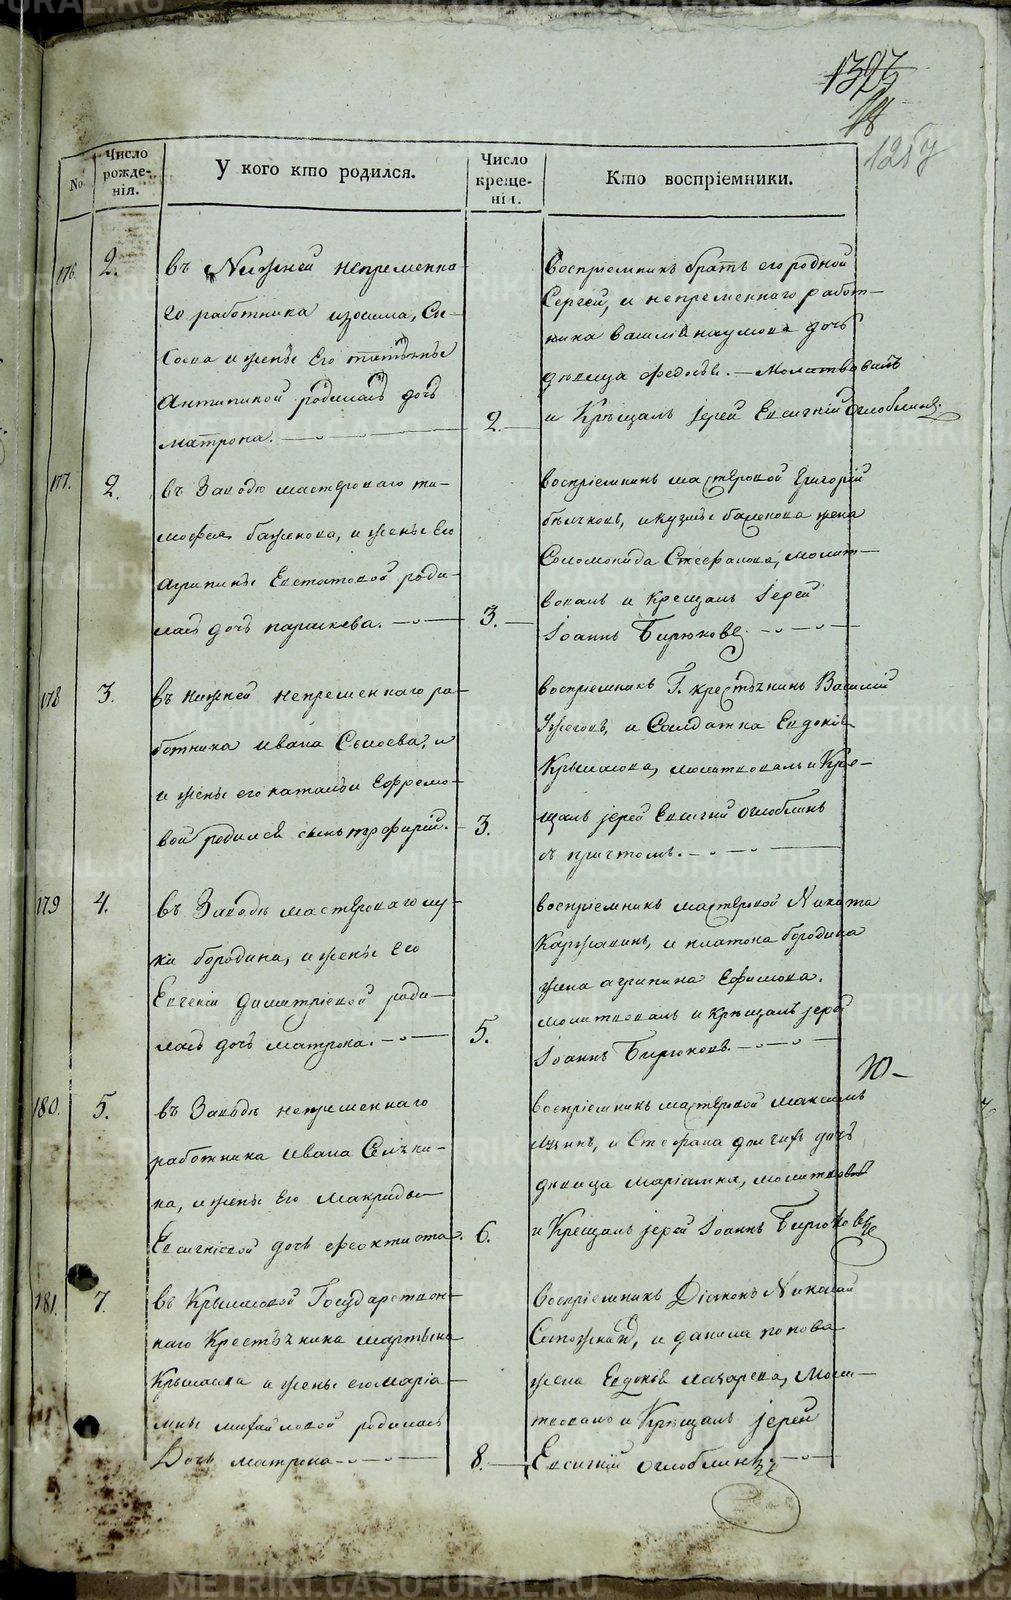 1397
18
125у
No.
Число рожде-нія.
У кого кто родился.
Число креще-нія.
Кто воспріемники.
176.
2.
въ Нижней непременна-
го работника изосима, Сы-
соева и жены Его татьяны
Антиповой родилась дочь
матрона.
2.
воспріемникъ братъ его родной
Сергей, и непременнаго работ-
ника василія наумова дочь
девица федосья. — Молитвовалъ
и Крѣщалъ іерей Евсигній Оглоблинъ.
177.
2.
въ Заводѣ мастерскаго ти-
мофея баженова, и жены Его
агрипины Евстатовой роди-
лась дочь параскева.
3.
воспріемникъ мастерской Григорій
бычковъ, и кузмы баженова жена
Соломонида Стефанова, молит-
вовалъ и Крещалъ Іерей
Іоаннъ Бирюковъ.
178
3.
въ нижней непременнаго ра-
ботника ивана Сысоева, и
и жены его натальи Ефремо-
вой родился сынъ трофирій.
3.
воспріемникъ Г. крестьянинъ Василій
и Солдатка Евдокія
Крыласова, молитвовалъ и Кре-
щалъ іерей Евсигній оглоблинъ
съ причтомъ.
179
4.
въ Заводѣ мастерскаго лу-
ки бородина, и жены Его
Евгеніи димитріевой роди-
лась дочь матрона.
5.
воспріемникъ мастерской Никита
Каржавинъ, и платона бородина
жена агрипина Ефимова.
молитвовалъ и крѣщалъ іерей
Іоаннъ Бирюковъ.
Ю-
180.
5.
въ Заводѣ непременнаго
работника Ивана
на, и жены Его Макриды
Евсигнѣевой дочь феоктиста.
6.
воспріемникъ мастерской максимъ
и Стефана дочь
девица маріамна, молитвовалъ
и Крещалъ іерей Іоаннъ Бирюковъ
181.
7.
въ Крыласовой Государствен-
наго Крестьянина мартына
Крыласова и жены его Маріа-
мны михайловой родилась
Дочь матрона
8.
воспріемникъ Діаконъ Николай
Сапожковъ, и данила попова
жена Евдокія лазарева, Моли-
твовалъ и Крѣщалъ іерей
Евсигній оглоблинъ